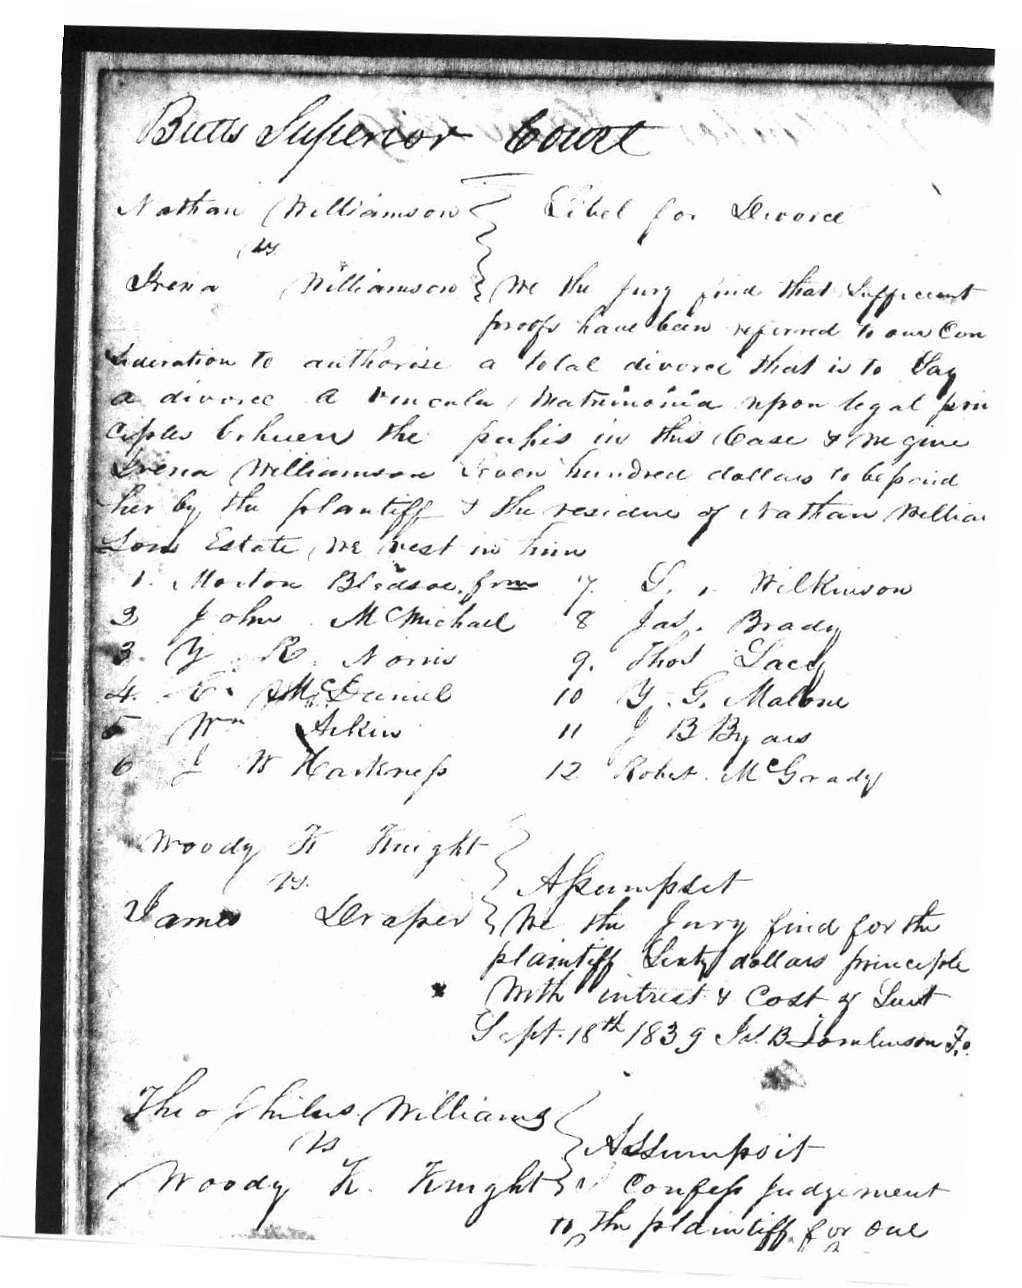 Butts Superior Court
Nathan Williamson Libel for Divorce
vs.
Irena Williamson We the Jury find that Sufficient
proofs have been referred to our Con
sideration to authorise a total divorce that is to Say
a divorce A vincula Matrimonia upon legal prin
ciples between the parties in this Case & we give
Irena Williamson Seven hundred dollars to be paid
her by the plantiff & the residue of Nathan William
sons Estate, We vest in him
1. Morton Bledsoe, frm 7. S. Wilkinson
2 John McMichael 8 Jas. Brady
3. Y R. Norris 9. Thos Lacy
4. McDaniel 10 Y. G. Malone
5 Wm Aikin 11 J B Byars
6 J W Harkness 12 Robert. McGrady
Woody K Knight
vs. Assumpsit
James Draper We the Jury find for the
plaintiff Sixty dollars principle
With intrest & Cost of Suit
Sept. 18th 1839 Tomlinson Fo.
Theophilus Williams
vs Assumpsit
Woody K. Knight I Confess Judgement
to the plaintiff for one